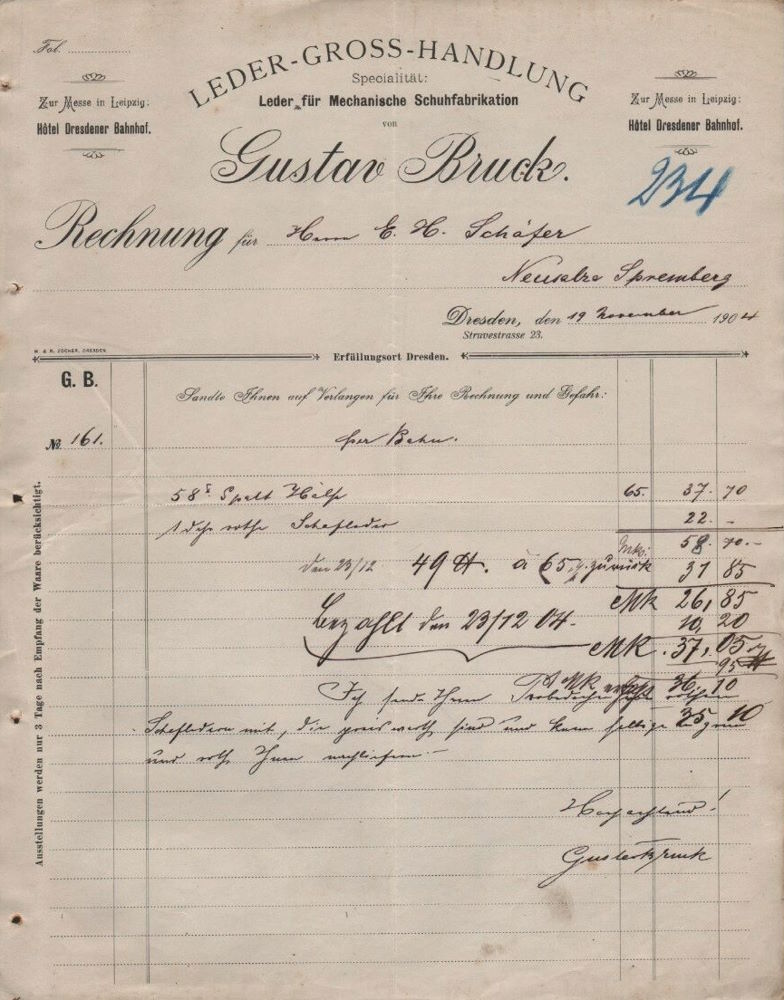 Fol.
LEDER-GROSS-HANDLUNG
Specialität:
Leder für Mechanische Schuhfabrikation
von
Gustav Bruck.
Zur Messe in Leipzig:
Hôtel Dresdener Bahnhof.
Zur Messe in Leipzig:
Hôtel Dresdener Bahnhof.
234
Rechnung für Herrn E. H. Schäfer
Neusalza Spremberg
Dresden, den 19 November 1904
Struvestrasse 23.
H. & R. ZOCHER, DRESDEN
Erfüllungsort Dresden.
G. B.
Sandte Ihnen auf Verlangen für Ihre Rechnung und Gefahr:
No. 161. per Bahn.
58 Spalt Hälse 65. 37. 70
1 rothe Schafleder 22. -
70.-
den 23/12 49 à 65 zurück 31 85
Mk 26,85
Bezahlt den 23/12 04. 10,20
Mk. 37,05
95
36,10
Ich sende Ihnen
35 10
mit, die preiswerth sind und kann
und roth Ihnen nachliefern
Hochachtend!
Gustav Bruck
Ausstellungen werden nur 3 Tage nach Empfang der Waare berücksichtigt.